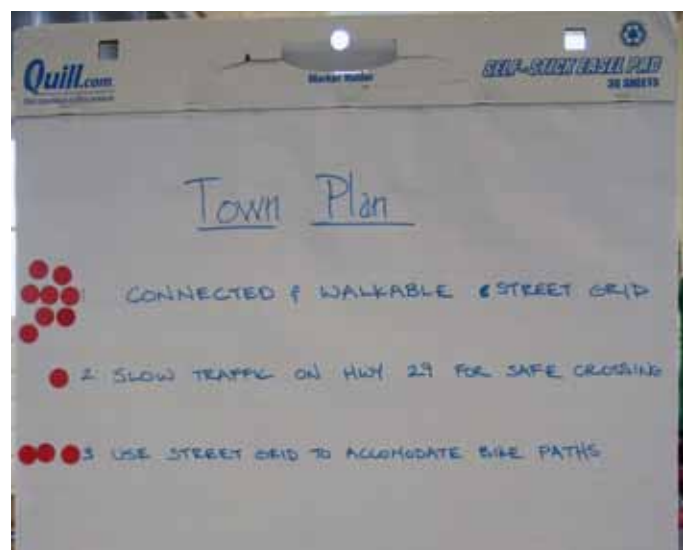 Quill.com
Marker Holder
SELF-STICK EASEL PAD
30 SHEETS
Town Plan
CONNECTED & WALKABLE STREET GRID
2 SLOW TRAFFIC ON HWY 29 FOR SAFE CROSSING
3 USE STREET GRID TO ACCOMODATE BIKE PATHS